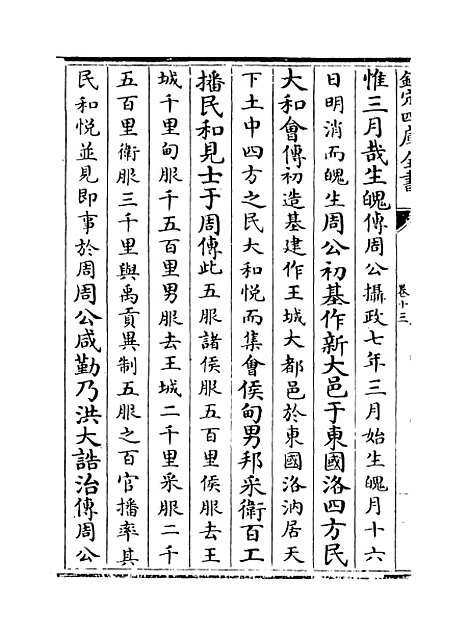 欽定四庫全書
卷十三
惟三月哉生魄傳周公攝政七年三月始生魄月十六
日明消而魄生周公初基作新大邑于東國洛四方民
大和會傳初造基建作王城大都邑於東國洛汭居天
下土中四方之民大和悅而集會侯甸男邦采衛百工
播民和見士于周傳此五服諸侯服五百里侯服去王
城千里甸服千五百里男服去王城二千里采服二千
五百里衛服三千里與禹貢異制五服之百官播率其
民和悅並見即事於周周公咸勤乃洪大誥治傳周公